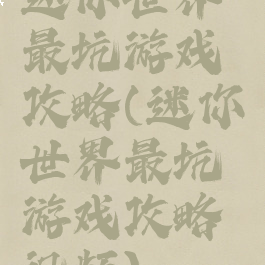 迷你世界
最坑游戏
攻略(迷你
世界最坑
游戏攻略
视频)